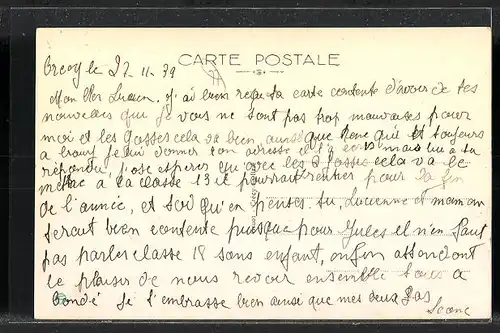 Crecy le 27 11 39
CARTE POSTALE
Mon cher Lucien, j'ai bien reçu ta carte contente d'avoir de tes
nouvelles qui je vous ne sont pas trop mauvaises pour
moi et les Gosses cela va bien ainsi que que est toujours
a je lui donner ton adresse il t'a mais lui a sa
répondre, j'ose esperer qu'avec les 3 gosses cela va le
mettre a la classe 13 il pourrait rentrer pour la fin
de l'année, et toi qu'en penses tu, Lucienne et maman
serait bien contente puisque pour Jules il n'en faut
pas parler classe 18 sans enfant, enfin attendont
le plaisir de nous revoir ensemble tous a
Condé je t'embrasse bien ainsi que mes deux gas